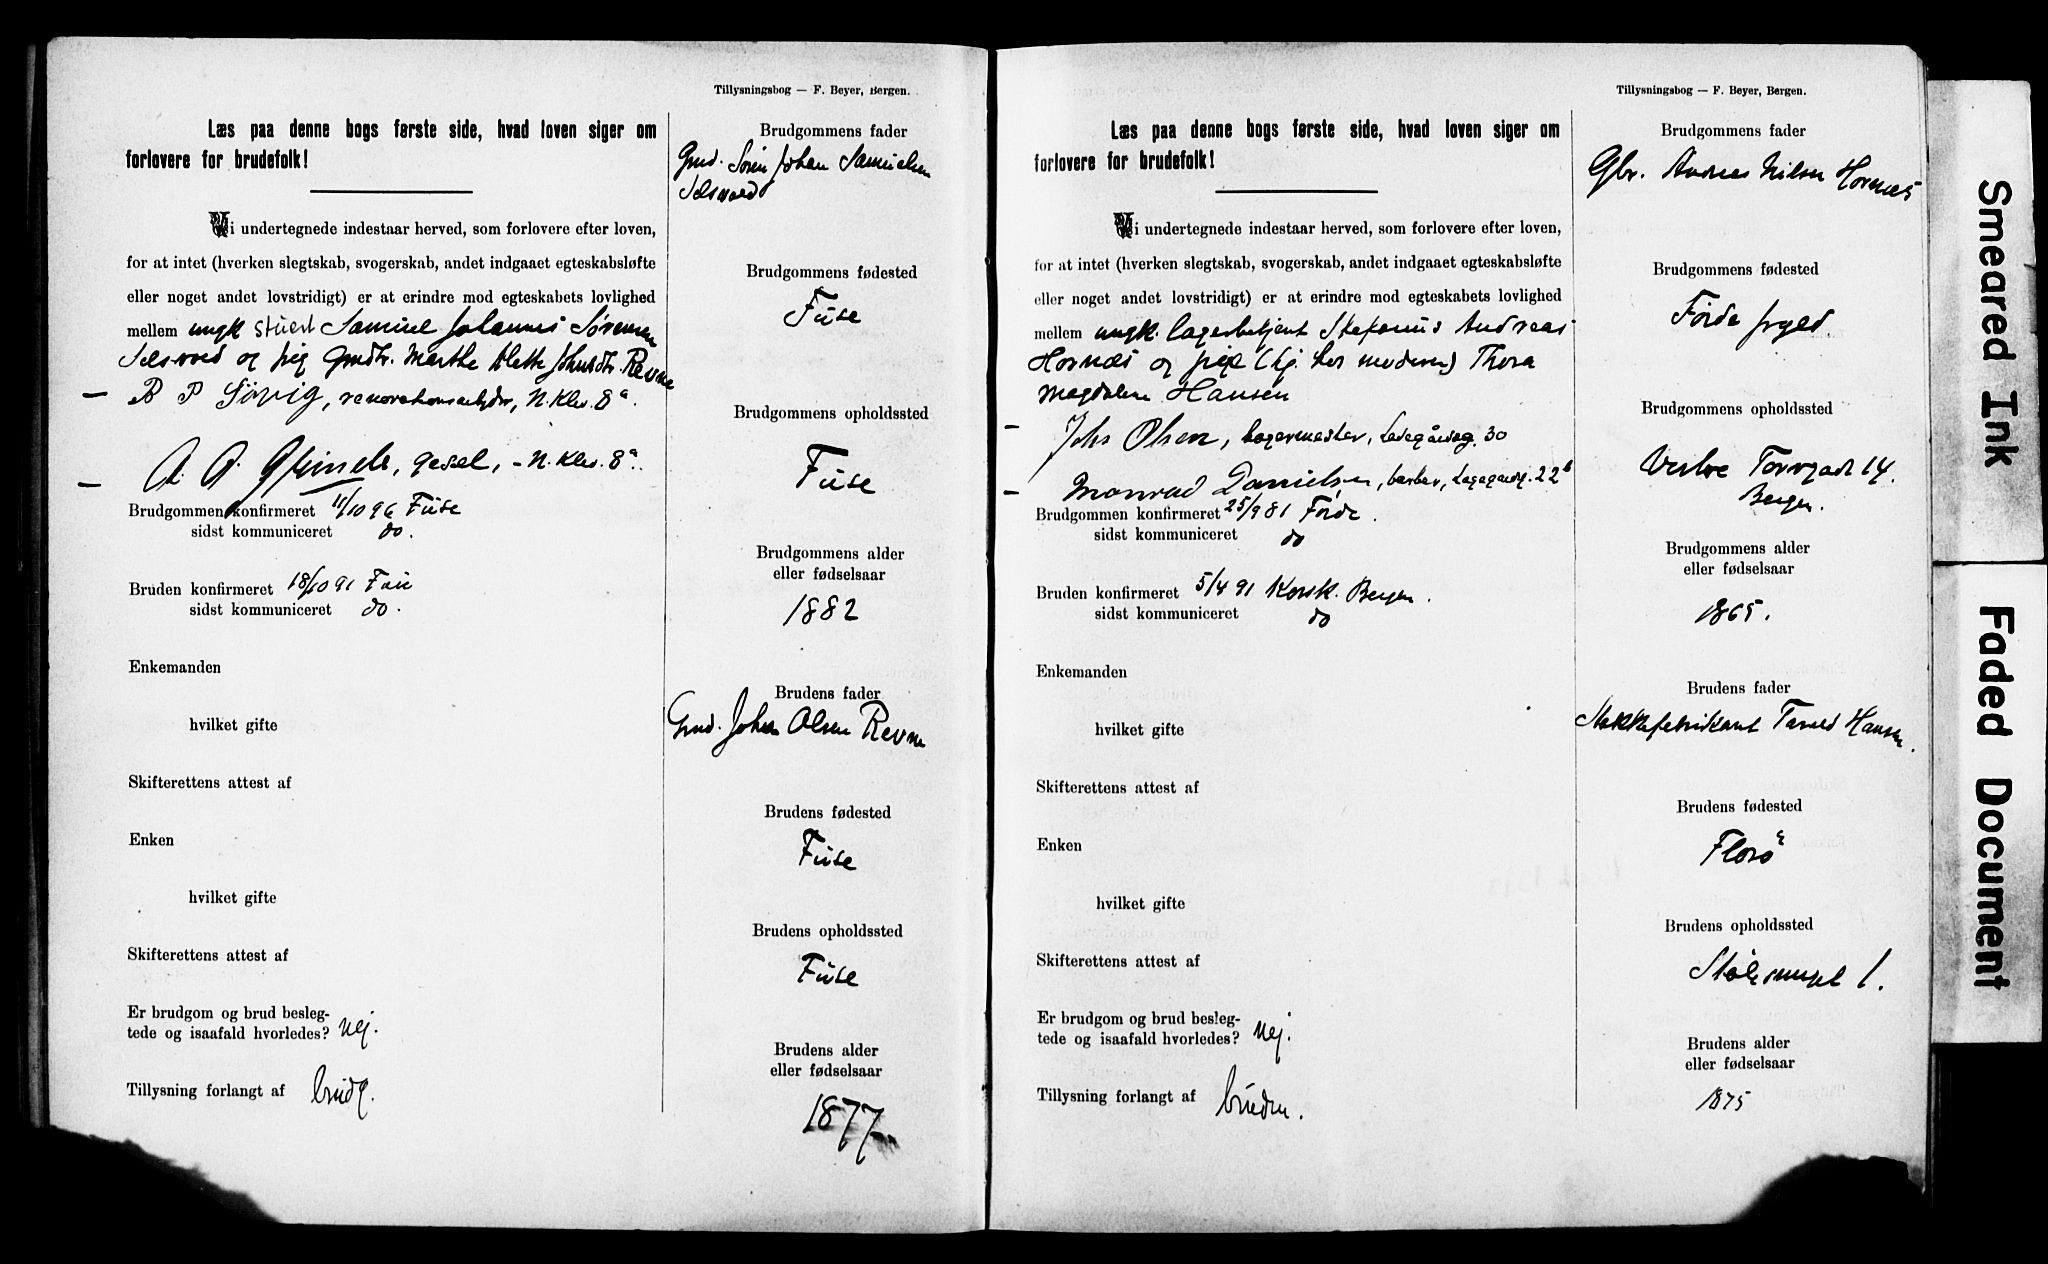 Tillysningsbog — F. Beyer, Bergen.
Læs paa denne bogs første side, hvad loven siger om
forlovere for brudefolk!
Vi undertegnede indestaar herved, som forlovere efter loven,
for at intet (hverken slegtskab, svogerskab, andet indgaaet egteskabsløfte
eller noget andet lovstridigt) er at erindre mod egteskabets lovlighed
mellem ungk stuert Samuel Johannes Sørensen
og pig Gmdtr. Marthe Mette Johnsdtr. Revne
— B P Sørvig, renovationsarbeider, N. Klev. 8a.
— A. P. gesel, - N. Klev. 8a.
Brudgommen konfirmeret 11/10 96 Fuse
sidst kommuniceret do.
Bruden konfirmeret 18/10 91 Fuse
sidst kommuniceret do.
Enkemanden
hvilket gifte
Skifterettens attest af
Enken
hvilket gifte
Skifterettens attest af
Er brudgom og brud besleg-
tede og isaafald hvorledes? Nej.
Tillysning forlangt af brudg.
Brudgommens fader
Gmd. Søren Johan Samuelsen
Brudgommens fødested
Fuse
Brudgommens opholdssted
Fuse
Brudgommens alder
eller fødselsaar
1882
Brudens fader
Gmd. Johan Olsen Revne
Brudens fødested
Fuse
Brudens opholdssted
Fuse
Brudens alder
eller fødselsaar
1877
Tillysningsbog — F. Beyer, Bergen.
Læs paa denne bogs første side, hvad loven siger om
forlovere for brudefolk!
Vi undertegnede indestaar herved, som forlovere efter loven,
for at intet (hverken slegtskab, svogerskab, andet indgaaet egteskabsløfte
eller noget andet lovstridigt) er at erindre mod egteskabets lovlighed
mellem ungk. lagerbetjent Stefanus Andreas
Hornæs og pige (hj. hos moderen) Thora
Magdalene Hansen
— Johs Olsen, bagermester, Ladegårdsg. 30
— Monrad Danielsen, barber, Ladegaardsg. 22b
Brudgommen konfirmeret 25/9 81 Førde.
sidst kommuniceret do
Bruden konfirmeret 5/4 91 Korsk. Bergen.
sidst kommuniceret do
Enkemanden
hvilket gifte
Skifterettens attest af
Enken
hvilket gifte
Skifterettens attest af
Er brudgom og brud besleg-
tede og isaafald hvorledes? Nej.
Tillysning forlangt af bruden.
Brudgommens fader
Gbr. Andreas Nilsen Hornæs
Brudgommens fødested
Førde prgjeld.
Brudgommens opholdssted
Vestre Torvgade 14.
Bergen.
Brudgommens alder
eller fødselsaar
1865.
Brudens fader
Hansen.
Brudens fødested
Florø
Brudens opholdssted
Stølesmuget 1.
Brudens alder
eller fødselsaar
1875
Smeared Ink
Faded Document